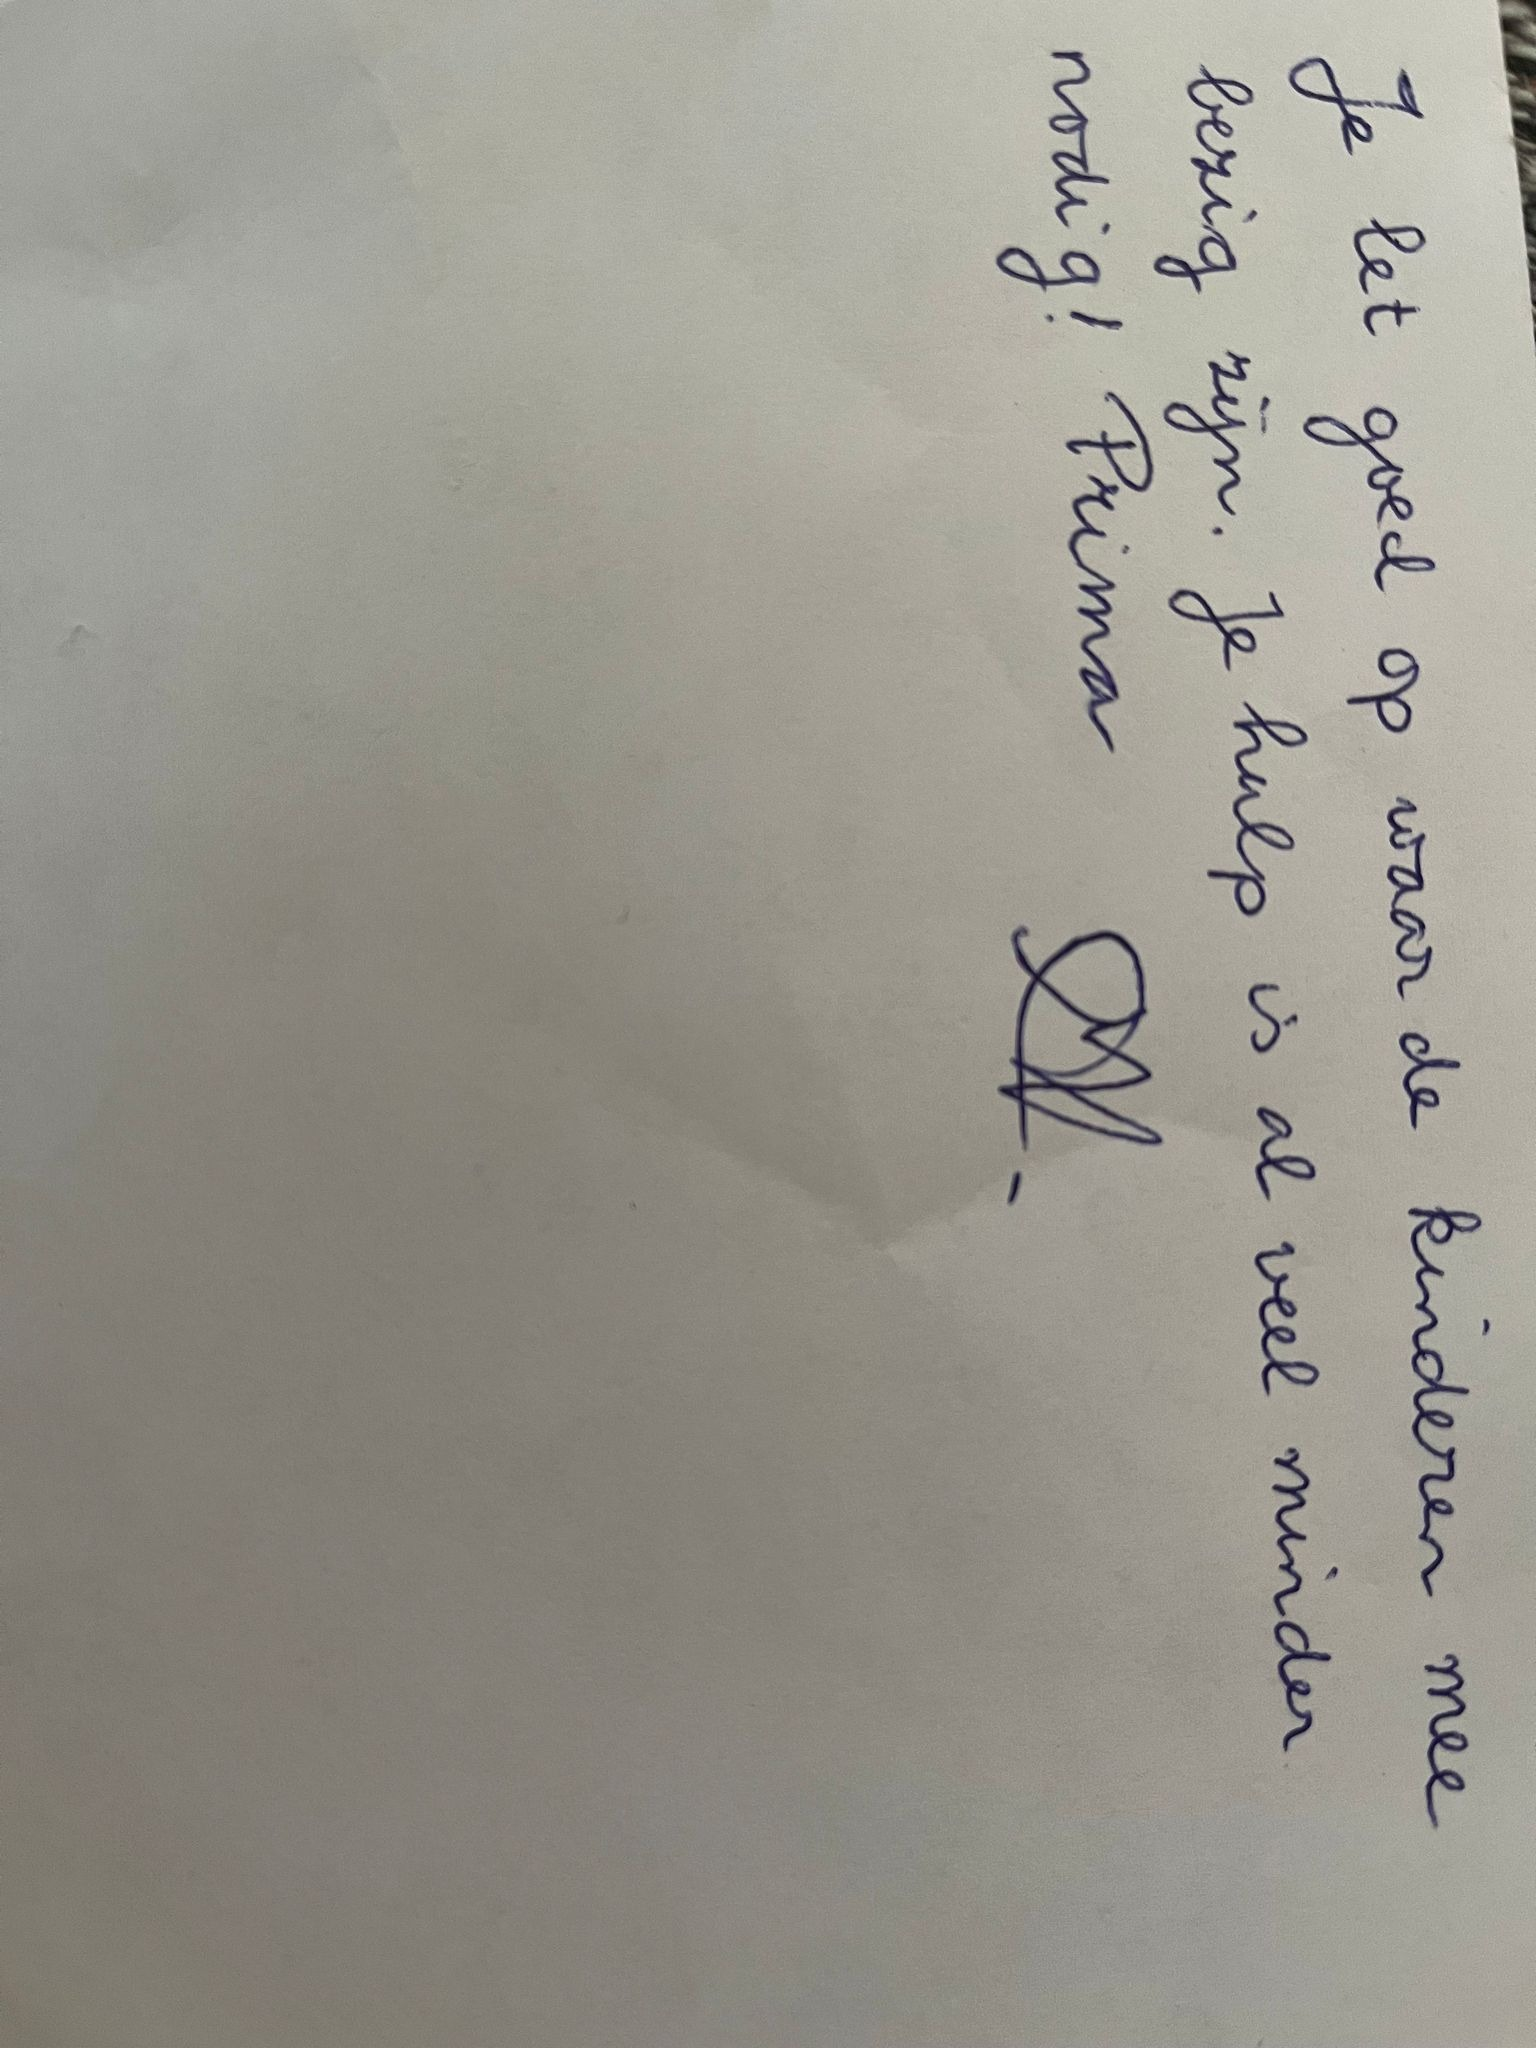 Je let goed op waar de kinderen mee
bezig zijn. Je hulp is al veel minder
nodig! Prima